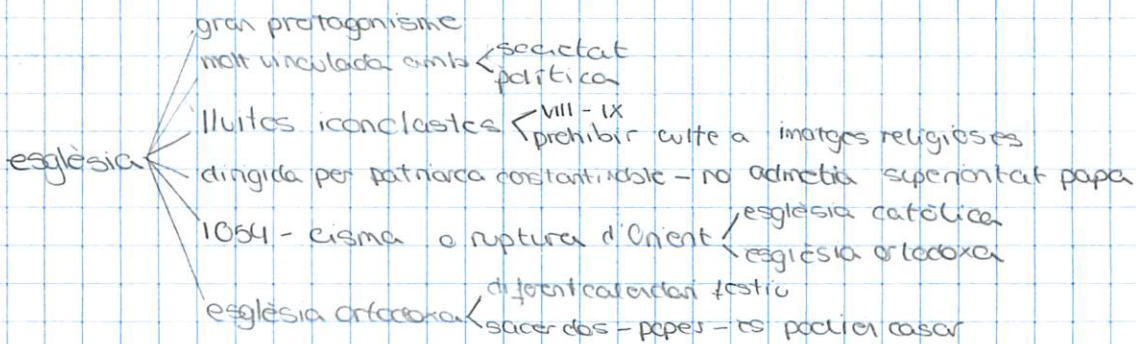 gran protagonisme
molt vinculada amb societat
política
lluites iconclastes VIII - IX
prohibir culte a imatges religioses
església
dirigida per patriarca constantinoble - no admetia superioritat papa
1054 - cisma o ruptura d'Orient església catòlica
església ortodoxa
església ortodoxa diferent calendari festiu
sacerdos - popes - es podien casar